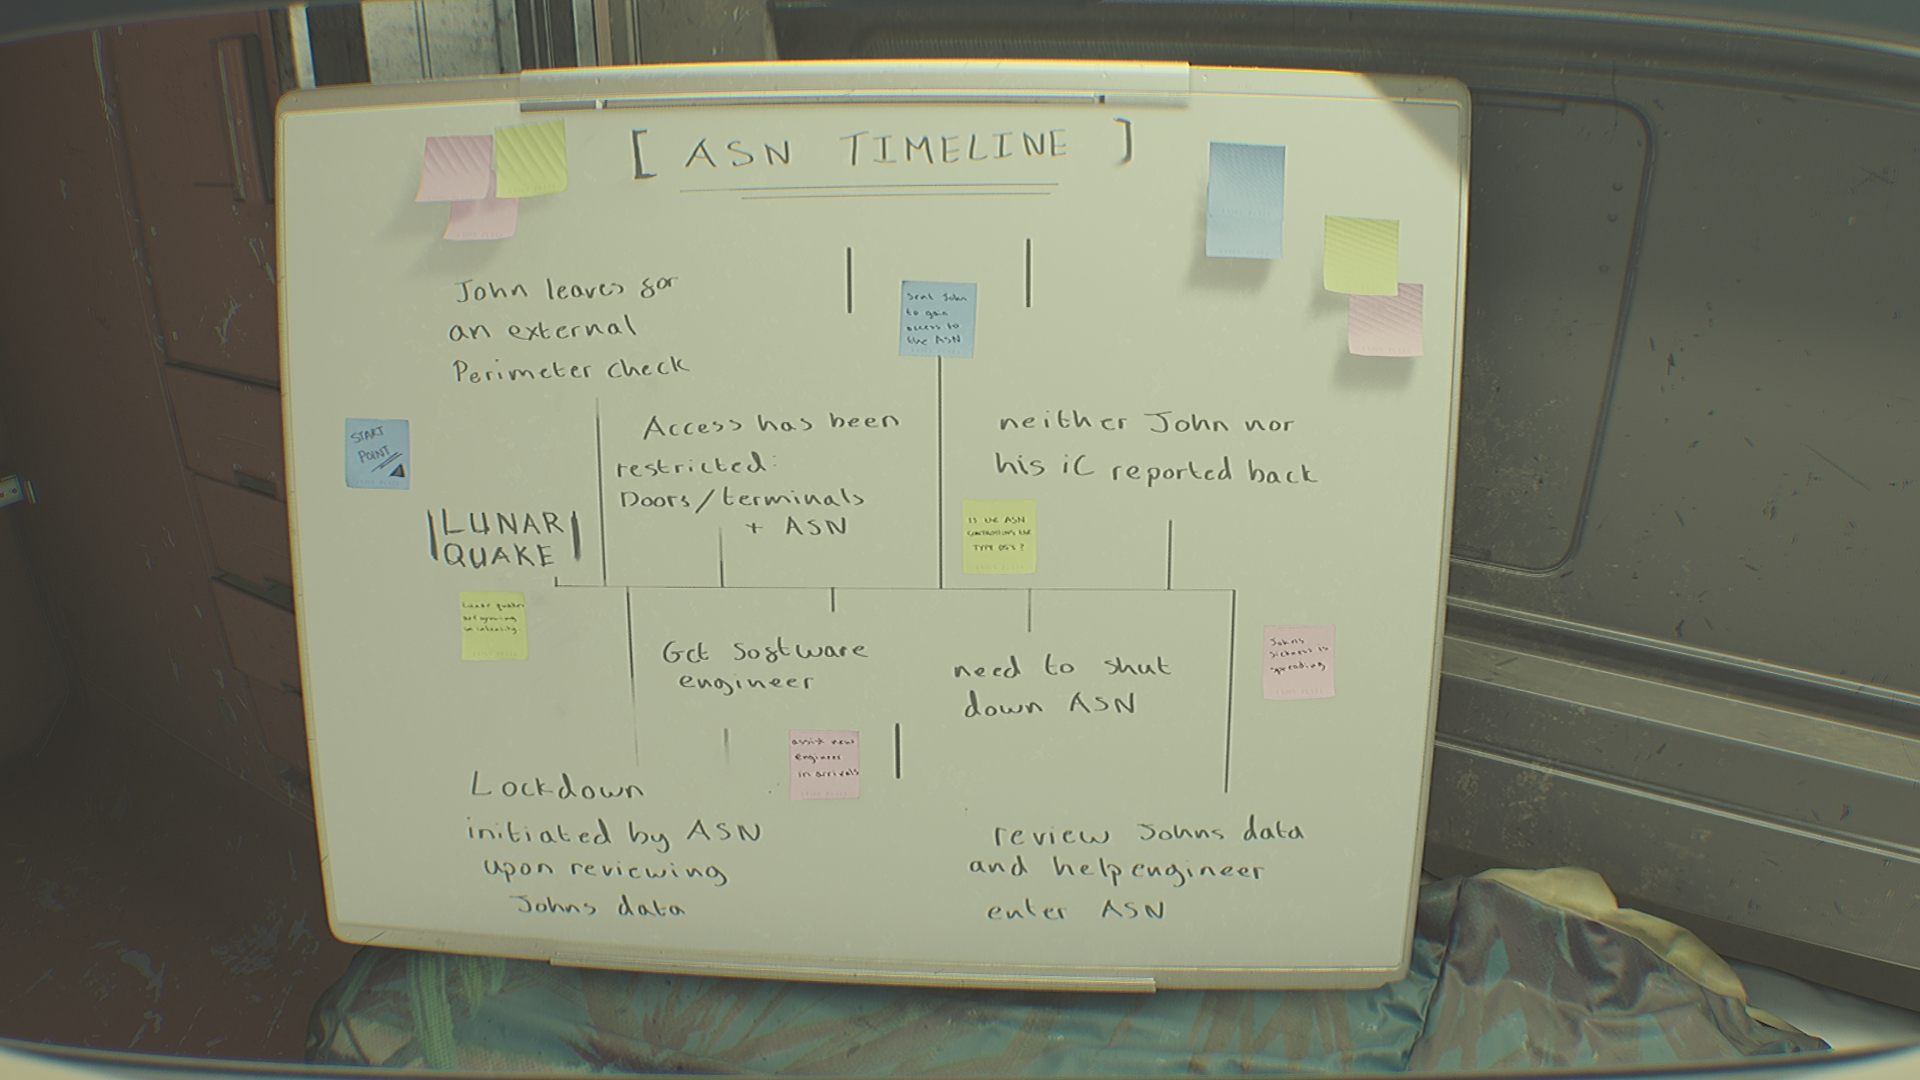 [ ASN TIMELINE ]
John leaves for
an external
Perimeter check
Sent John
to gain
access to
the ASN
START
POINT
Access has been
restricted:
Doors/terminals
+ ASN
neither John nor
his iC reported back
LUNAR
QUAKE
IS THE ASN
CONTROLLING THE
TYPE 05's?
Lunar quakes
are growing
in intensity
Get Software
engineer
need to shut
down ASN
Johns
sickness is
spreading
assist new
engineer
in arrivals
Lockdown
initiated by ASN
upon reviewing
Johns data
review Johns data
and help engineer
enter ASN